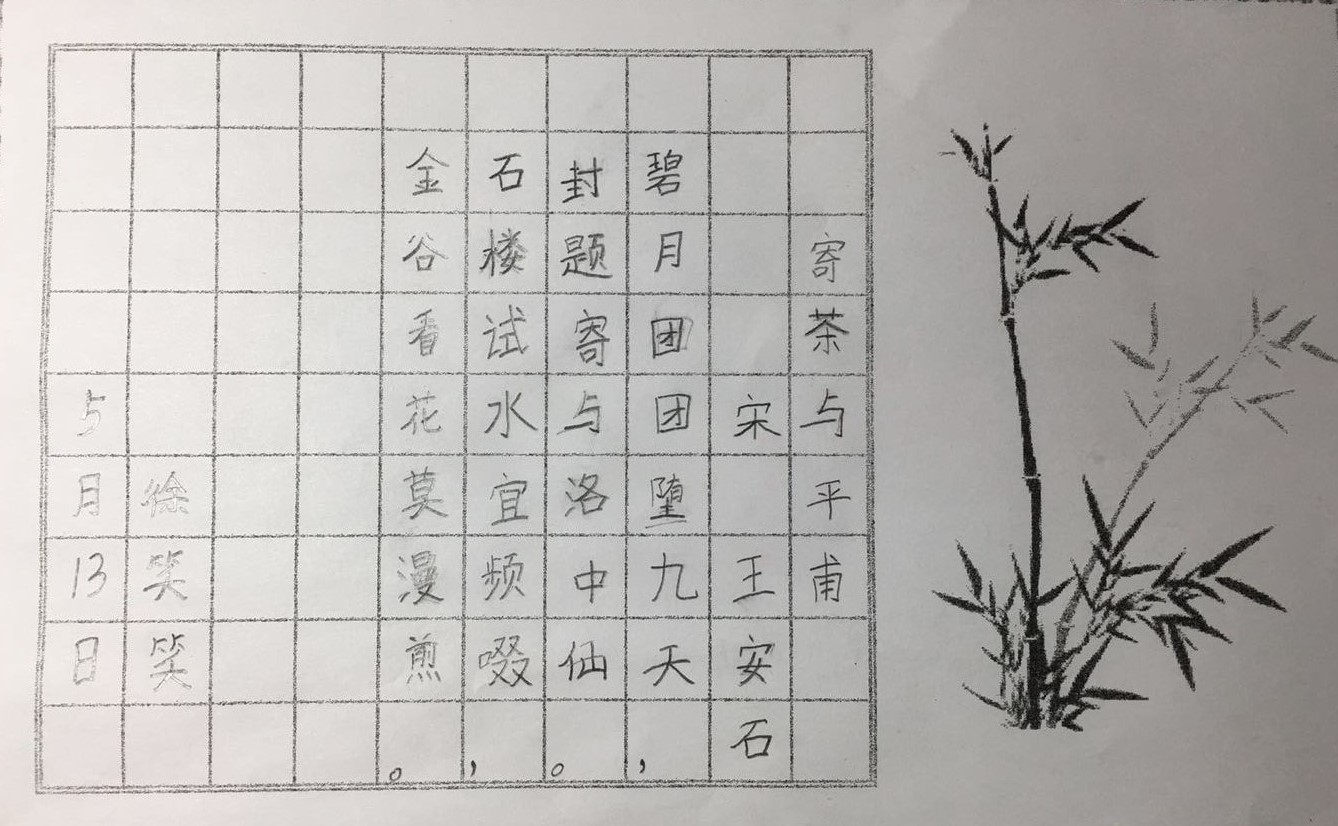 寄茶与平甫
宋 王安石
碧月团团堕九天，
封题寄与洛中仙。
石楼试水宜频啜，
金谷看花莫漫煎。
徐笑笑
5月13日